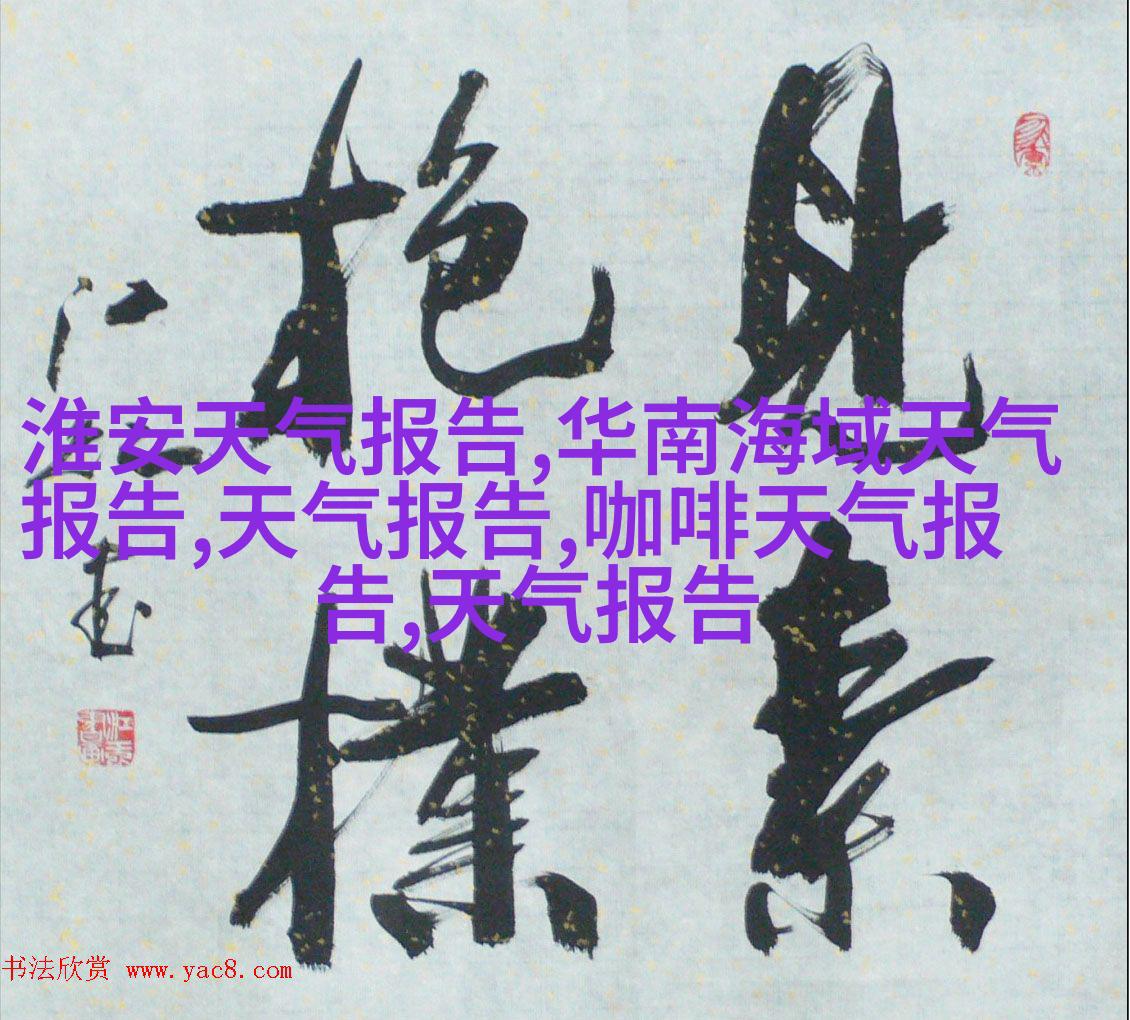 見素
抱樸
淮安天气报告,华南海域天气
报告,天气报告,咖啡天气报
告,天气报告
书法欣赏 www.yac8.com